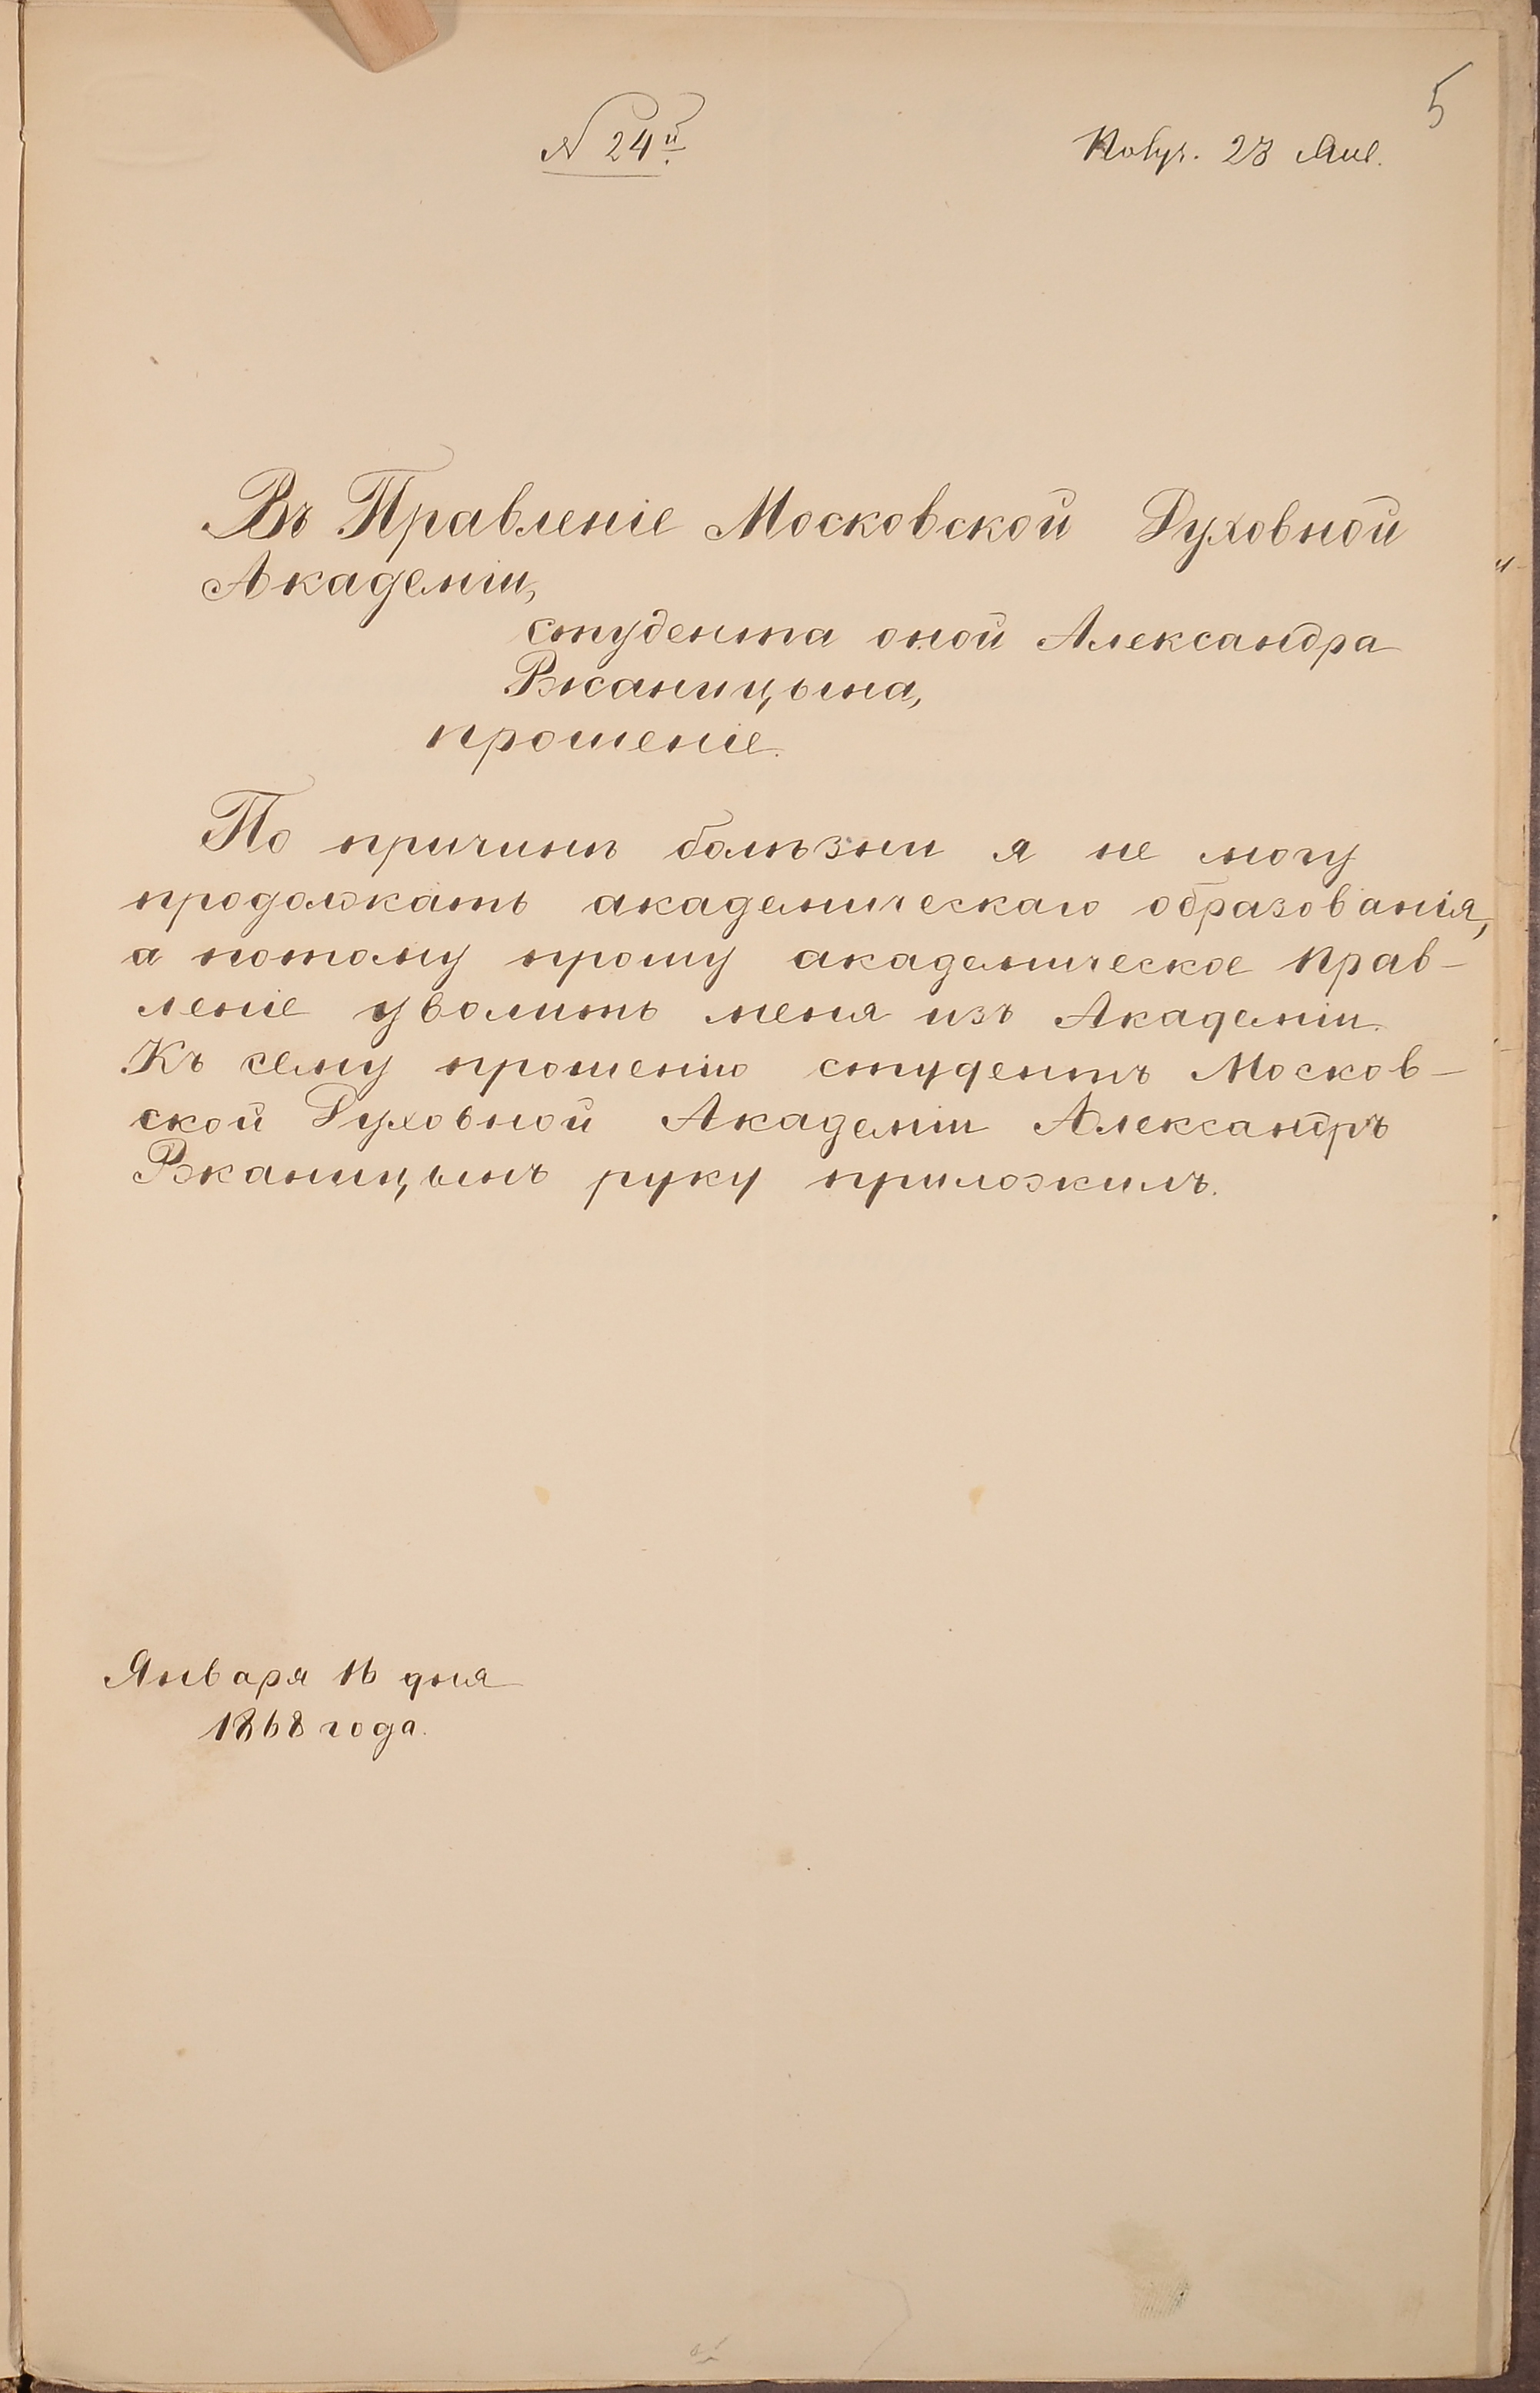 5
№ 24й
Получ. 23 Янв.
Въ Правленіе Московской Духовной
Академіи,
студента оной Александра
Ржаницына,
прошеніе.
По причинѣ болѣзни я не могу
продолжать академическаго образованія,
а потому прошу академическое Прав-
леніе уволить меня изъ Академіи.
Къ сему прошенію студентъ Москов-
ской Духовной Академіи Александръ
Ржаницынъ руку приложилъ.
Января 16 дня
1868 года.